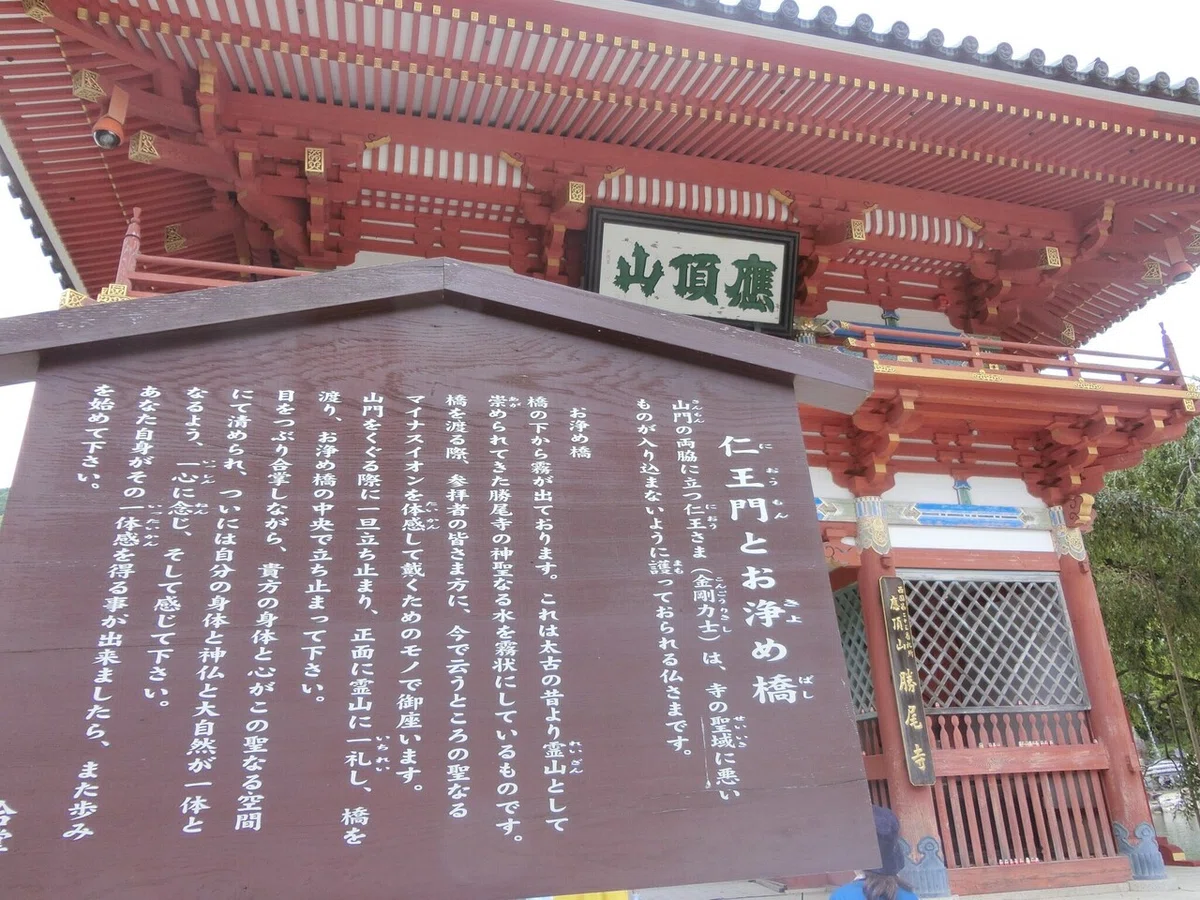 應頂山
仁王門とお浄め橋
山門の両脇に立つ仁王さま（金剛力士）は、寺の聖域に悪い
ものが入り込まないように護っておられる仏さまです。
お浄め橋
橋の下から霧が出ております。これは太古の昔より霊山として
崇められてきた勝尾寺の神聖なる水を霧状にしているものです。
橋を渡る際、参拝者の皆さま方に、今で云うところの聖なる
マイナスイオンを体感して戴くためのモノで御座います。
山門をくぐる際に一旦立ち止まり、正面に霊山に一礼し、橋を
渡り、お浄め橋の中央で立ち止まって下さい。
目をつぶり合掌しながら、貴方の身体と心がこの聖なる空間
にて清められ、ついには自分の身体と神仏と大自然が一体と
なるよう、一心に念じ、そして感じて下さい。
あなた自身がその一体感を得る事が出来ましたら、また歩み
を始めて下さい。
應頂山 勝尾寺